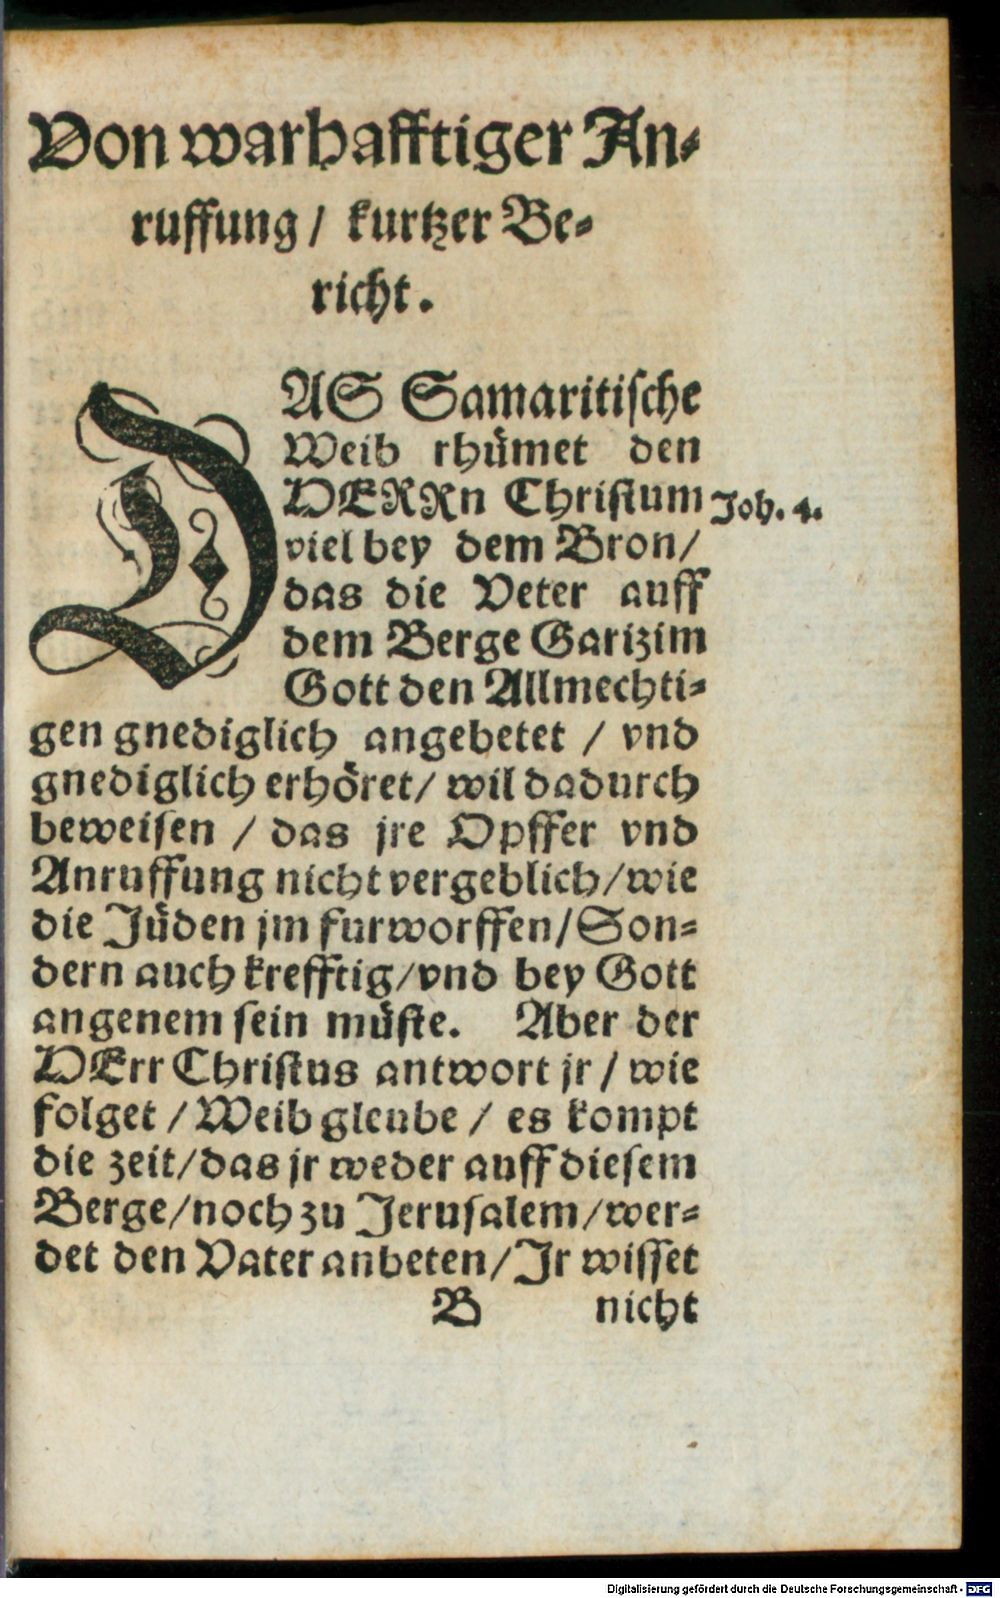 Von warhafftiger An-
ruffung / kurtzer Be-
richt.
DAS Samaritische
Weib rhümet den
HERRn Christum
Joh. 4.
viel bey dem Bron/
das die Veter auff
dem Berge Garizim
Gott den Allmechti-
gen gnediglich angebetet / vnd
gnediglich erhöret/ wil dadurch
beweisen / das jre Opffer vnd
Anruffung nicht vergeblich/wie
die Jüden jm furworffen/Son-
dern auch krefftig/vnd bey Gott
angenem sein müste. Aber der
HErr Christus antwort jr / wie
folget / Weib gleube / es kompt
die zeit/das jr weder auff diesem
Berge/noch zu Jerusalem/wer-
det den Vater anbeten/Jr wisset
B nicht
Digitalisierung gefördert durch die Deutsche Forschungsgemeinschaft - DFG